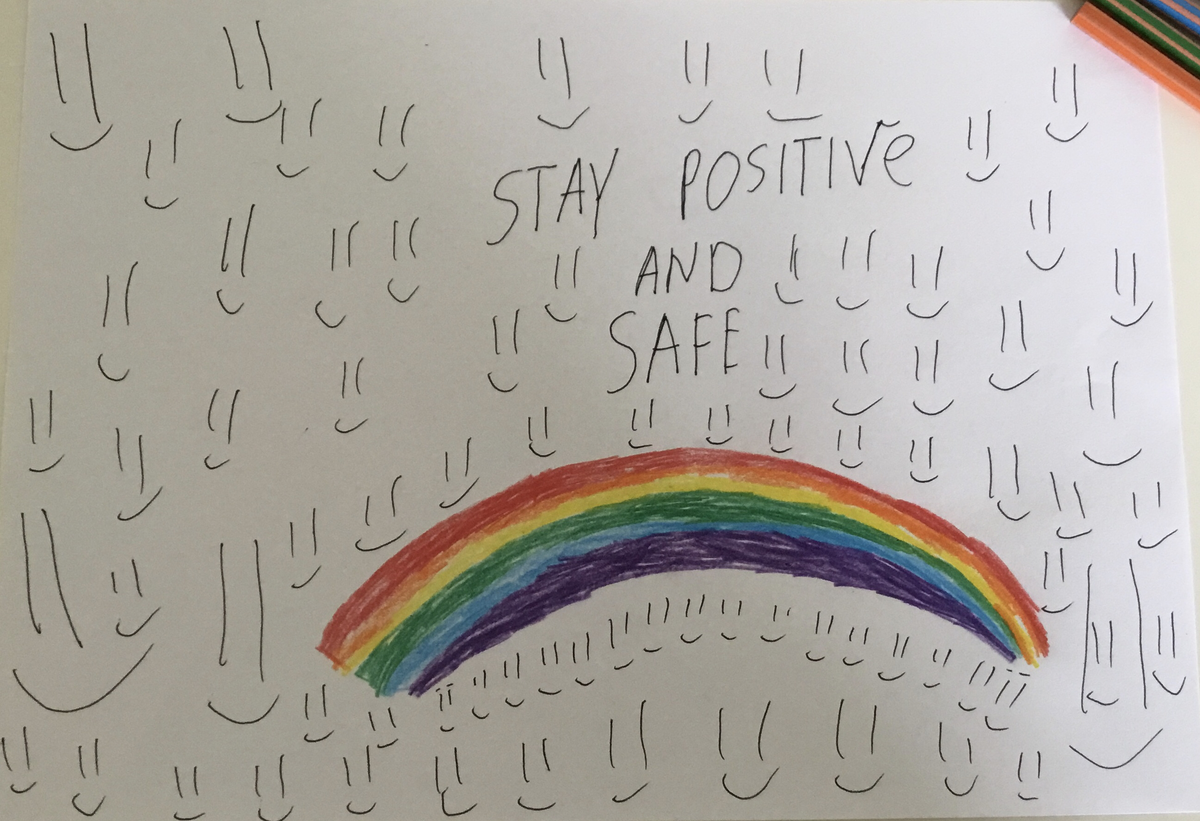 STAY POSITIVe
AND
SAFE